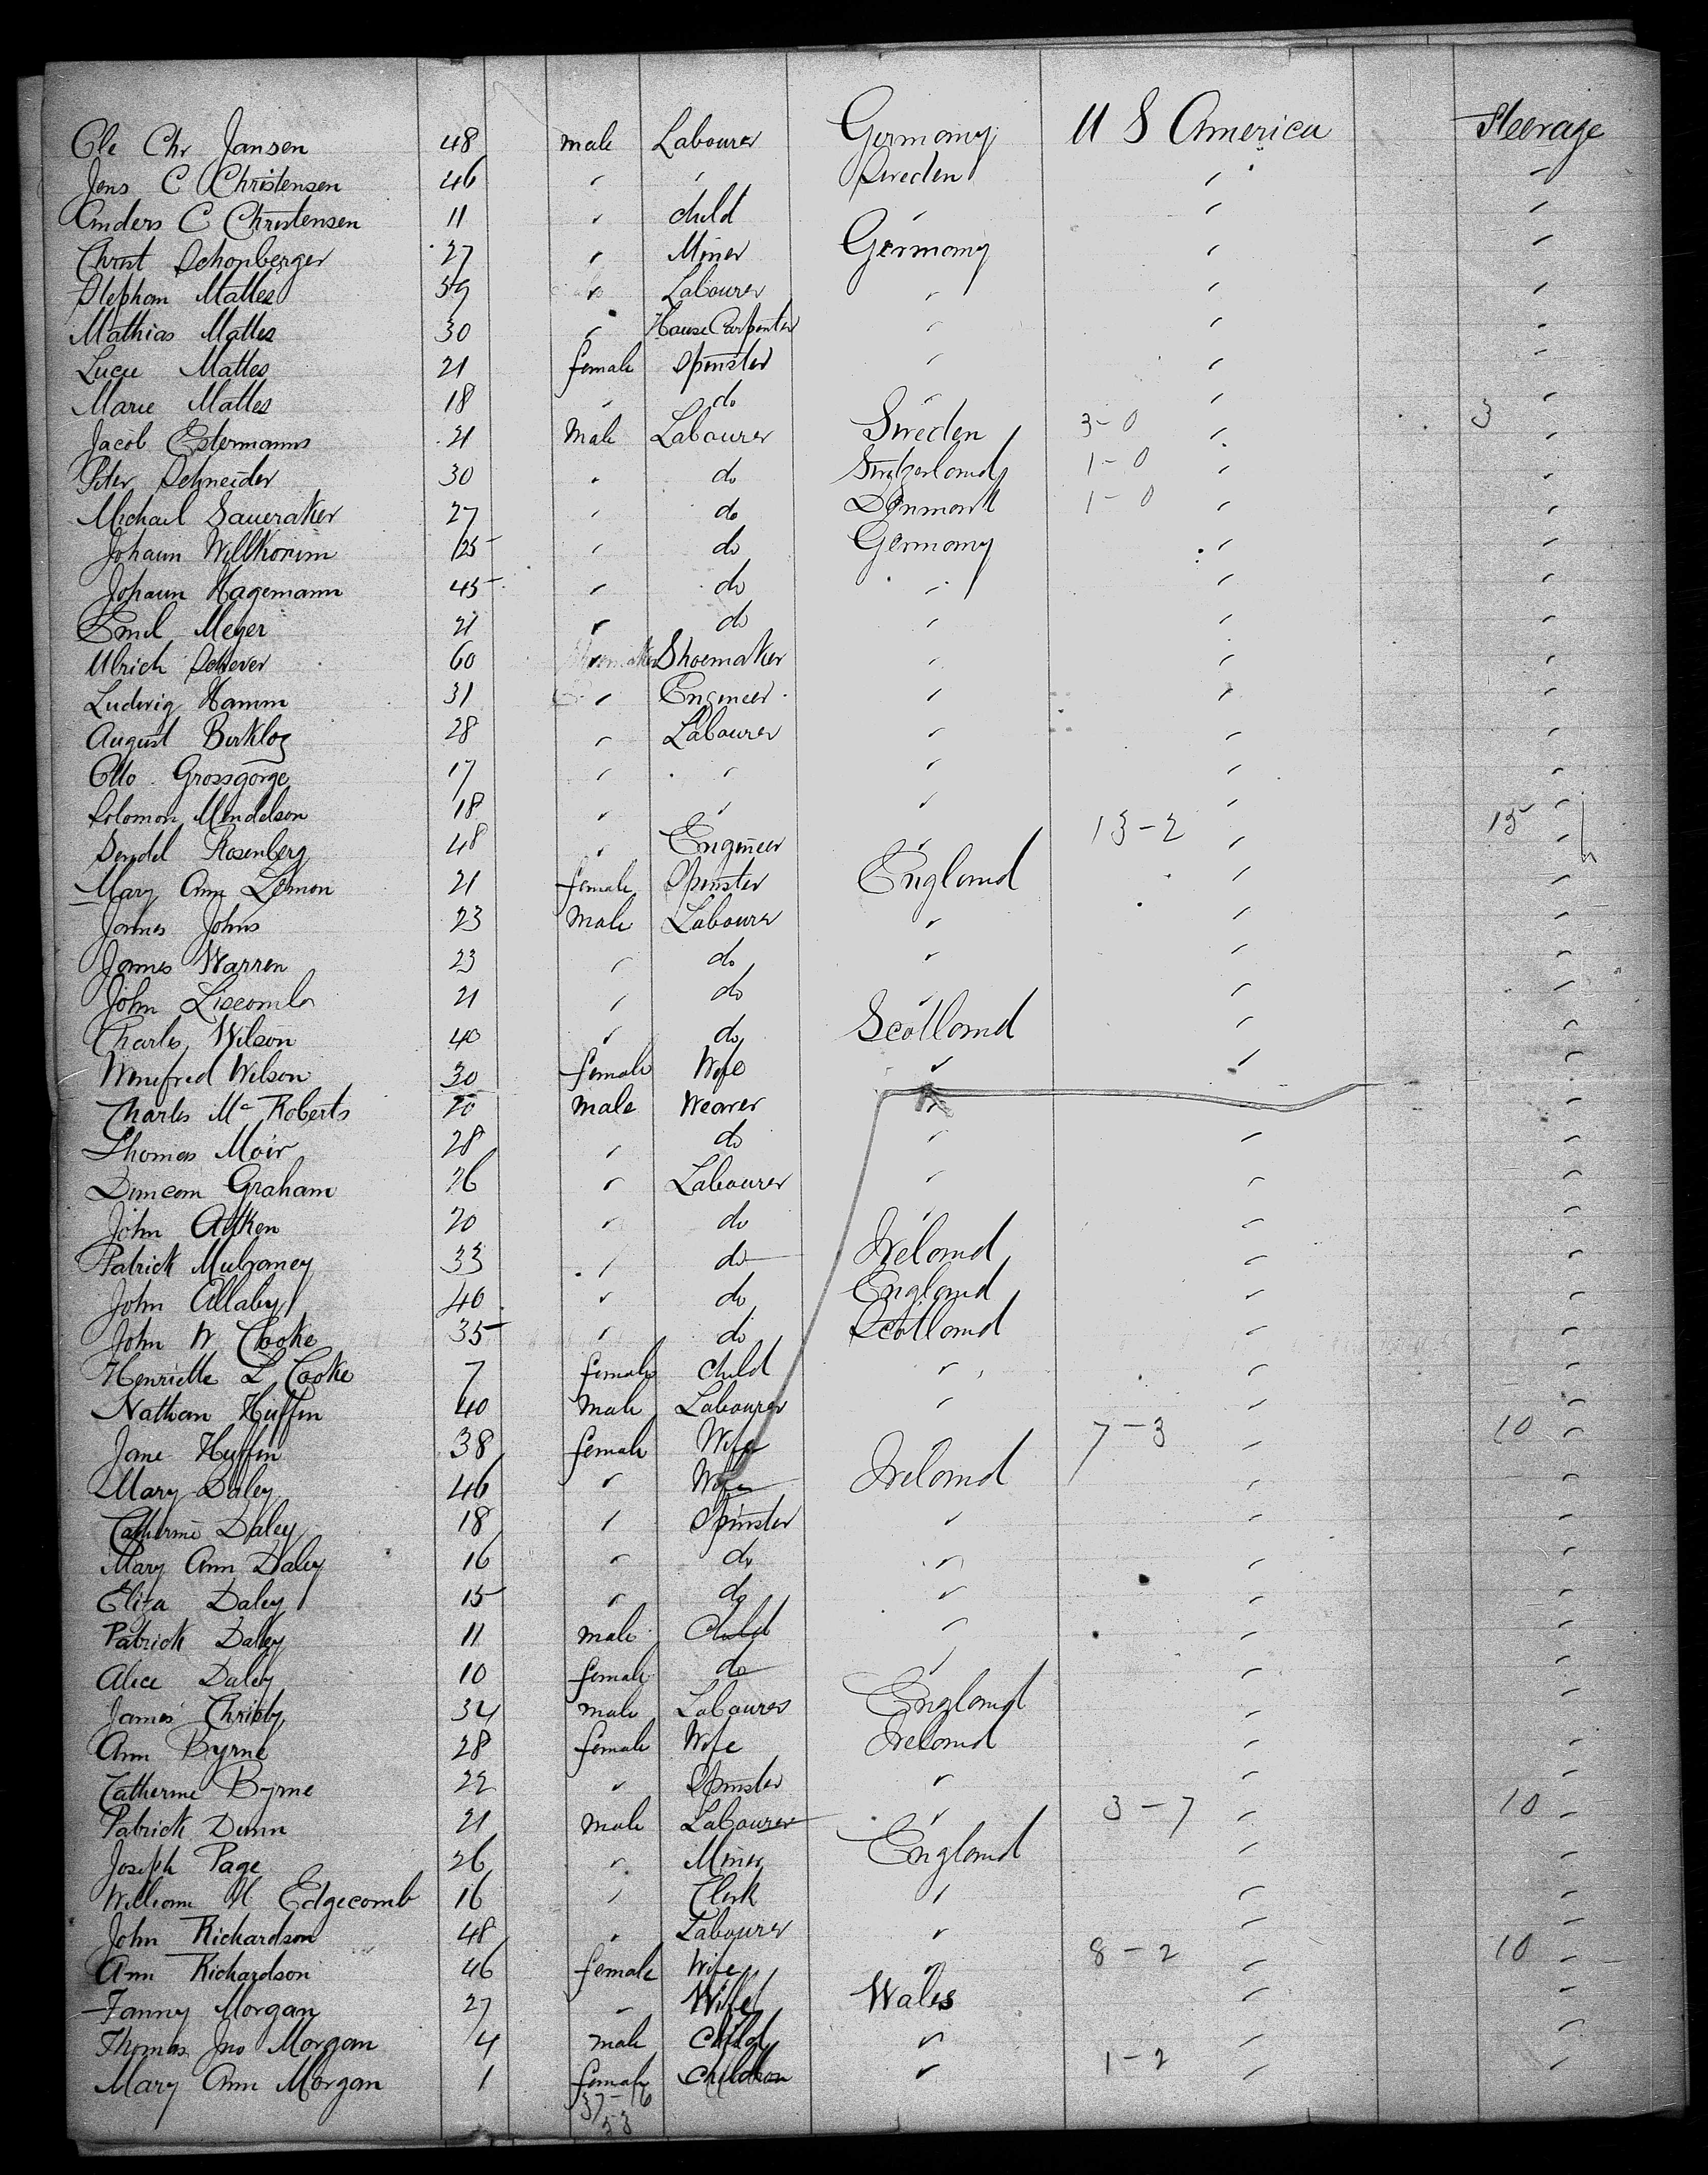 Ole Chr Jansen 48 male Labourer Germany U S America Steerage
Jens C Christensen 46 " " Sweden " "
Anders C Christensen 11 " child " " "
Christ Schonberger 27 " Miner Germany " "
Stephan Mattes 59 " Labourer " " "
Mathias Mattes 30 " House Carpenter " " "
Lucie Mattes 21 female Spinster " " "
Marie Mattes 18 " do " " "
Jacob Estermanns 21 Male Labourer Sweden 3-0 " 3 "
Peter Schneider 30 " do Switzerland 1-0 " "
Michael Saueraker 27 " do Denmark 1-0 " "
Johann Willkomm 25 " do Germany " "
Johann Hagemann 45 " do " " "
Emil Meyer 21 " do " " "
Ulrich Scherer 60 " Shoemaker " " "
Ludwig Hamm 31 " Engineer " " "
August 28 " Labourer " " "
Otto Grossgorge 17 " " " " "
Solomon Mendelson 18 " " " " "
Sendel Rosenberg 48 " Engineer " 13-2 " 15 "
Mary Ann Lemon 21 female Spinster England " "
James Johns 23 Male Labourer " " "
James Warren 23 " do " " "
John Liscomb 21 " do " " "
Charles Wilson 40 " do Scotland " "
Winefred Wilson 30 female Wife " " "
Charles Mc Roberts 20 male Weaver " "
Thomas Moir 28 " do " " "
Duncan Graham 26 " Labourer " " "
John Aitken 20 " do " " "
Patrick Mulraney 33 " do Ireland " "
John Allaby 40 " do England " "
John W Cooke 35 " do Scotland " "
Henriette L Cooke 7 female child " " "
Nathan Huffin 40 Male Labourer " " "
Jane Huffin 38 female Wife " 7-3 " 10 "
Mary Daley 46 " Wife Ireland " "
Catherine Daley 18 " Spinster " " "
Mary Ann Daley 16 " do " " "
Eliza Daley 15 " do " " "
Patrick Daley 11 male Child " " "
Alice Daley 10 female do " " "
James 34 male Labourer England " "
Ann Byrne 28 female Wife Ireland " "
Catherine Byrne 22 " Spinster " " "
Patrick Dunn 21 male Labourer " 3-7 " 10 "
Joseph Page 26 " Miner England " "
William H Edgecomb 16 " Clerk " " "
John Richardson 48 " Labourer " " "
Ann Richardson 46 female Wife " 8-2 " 10 "
Fanny Morgan 27 " Wife Wales " "
Thomas Jno Morgan 4 male Child " " "
Mary Ann Morgan 1 female " 1-2 " "
37-16
53